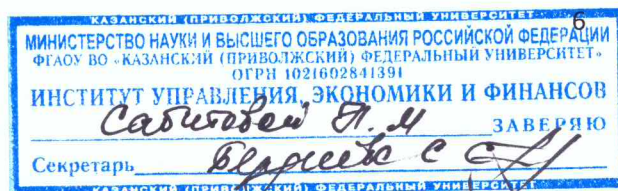 КАЗАНСКИЙ (ПРИВОЛЖСКИЙ) ФЕДЕРАЛЬНЫЙ УНИВЕРСИТЕТ
6
МИНИСТЕРСТВО НАУКИ И ВЫСШЕГО ОБРАЗОВАНИЯ РОССИЙСКОЙ ФЕДЕРАЦИИ
ФГАОУ ВО «КАЗАНСКИЙ (ПРИВОЛЖСКИЙ) ФЕДЕРАЛЬНЫЙ УНИВЕРСИТЕТ»
ОГРН 1021602841391
ИНСТИТУТ УПРАВЛЕНИЯ, ЭКОНОМИКИ И ФИНАНСОВ
Сабитовой Н.М ЗАВЕРЯЮ
Секретарь
КАЗАНСКИЙ (ПРИВОЛЖСКИЙ) ФЕДЕРАЛЬНЫЙ УНИВЕРСИТЕТ